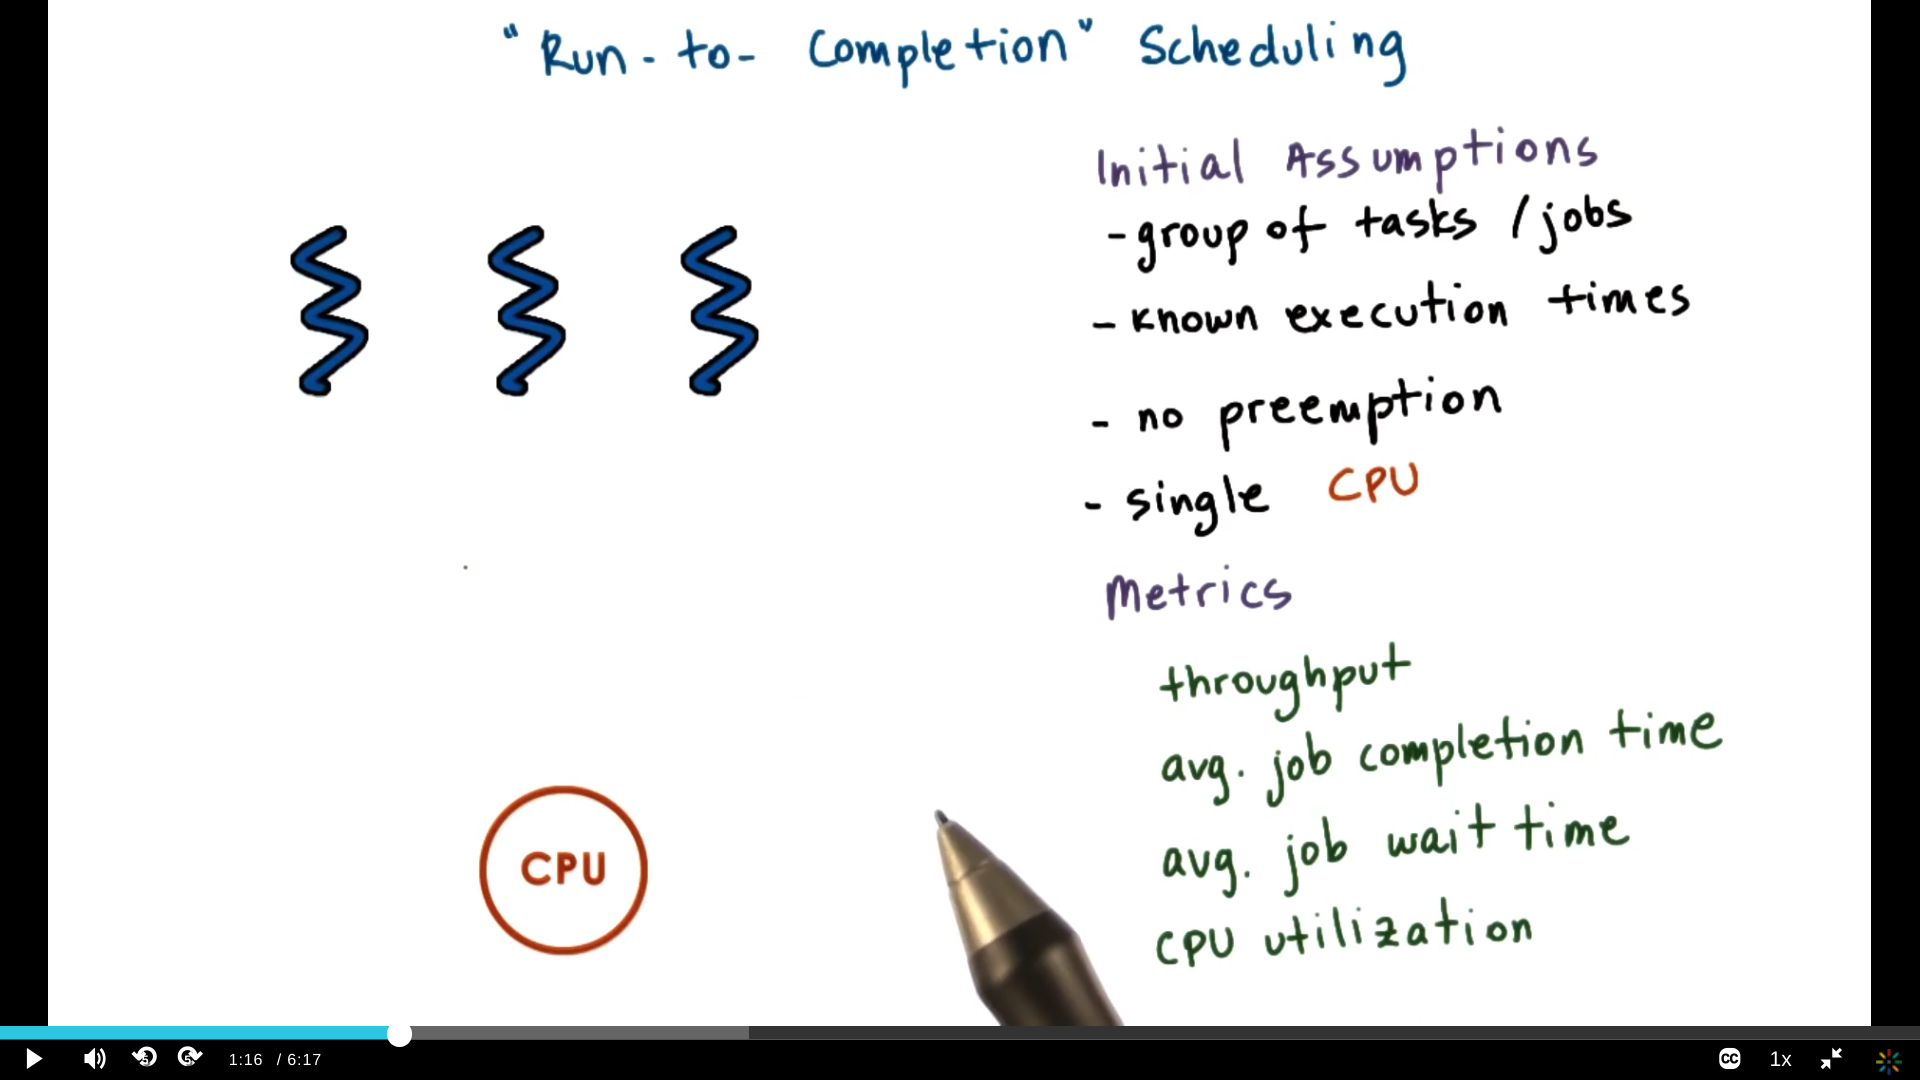 "Run-to-Completion" Scheduling
Initial Assumptions
- group of tasks / jobs
- known execution times
- no preemption
- single CPU
Metrics
throughput
avg. job completion time
avg. job wait time
CPU utilization
CPU
5 5 1:16 / 6:17 CC 1x